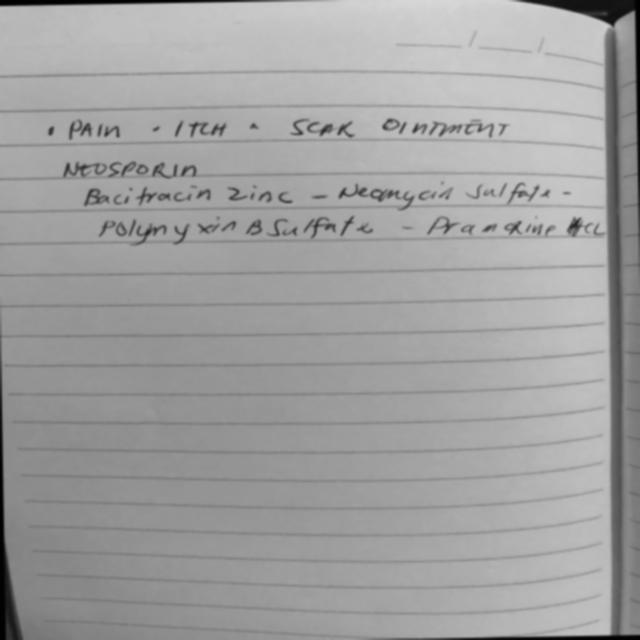 • PAIN • ITCH • SCAR OINTMENT
NEOSPORIN
Bacitracin Zinc - Neomycin Sulfate -
Polymyxin B Sulfate - Pramoxine HCL